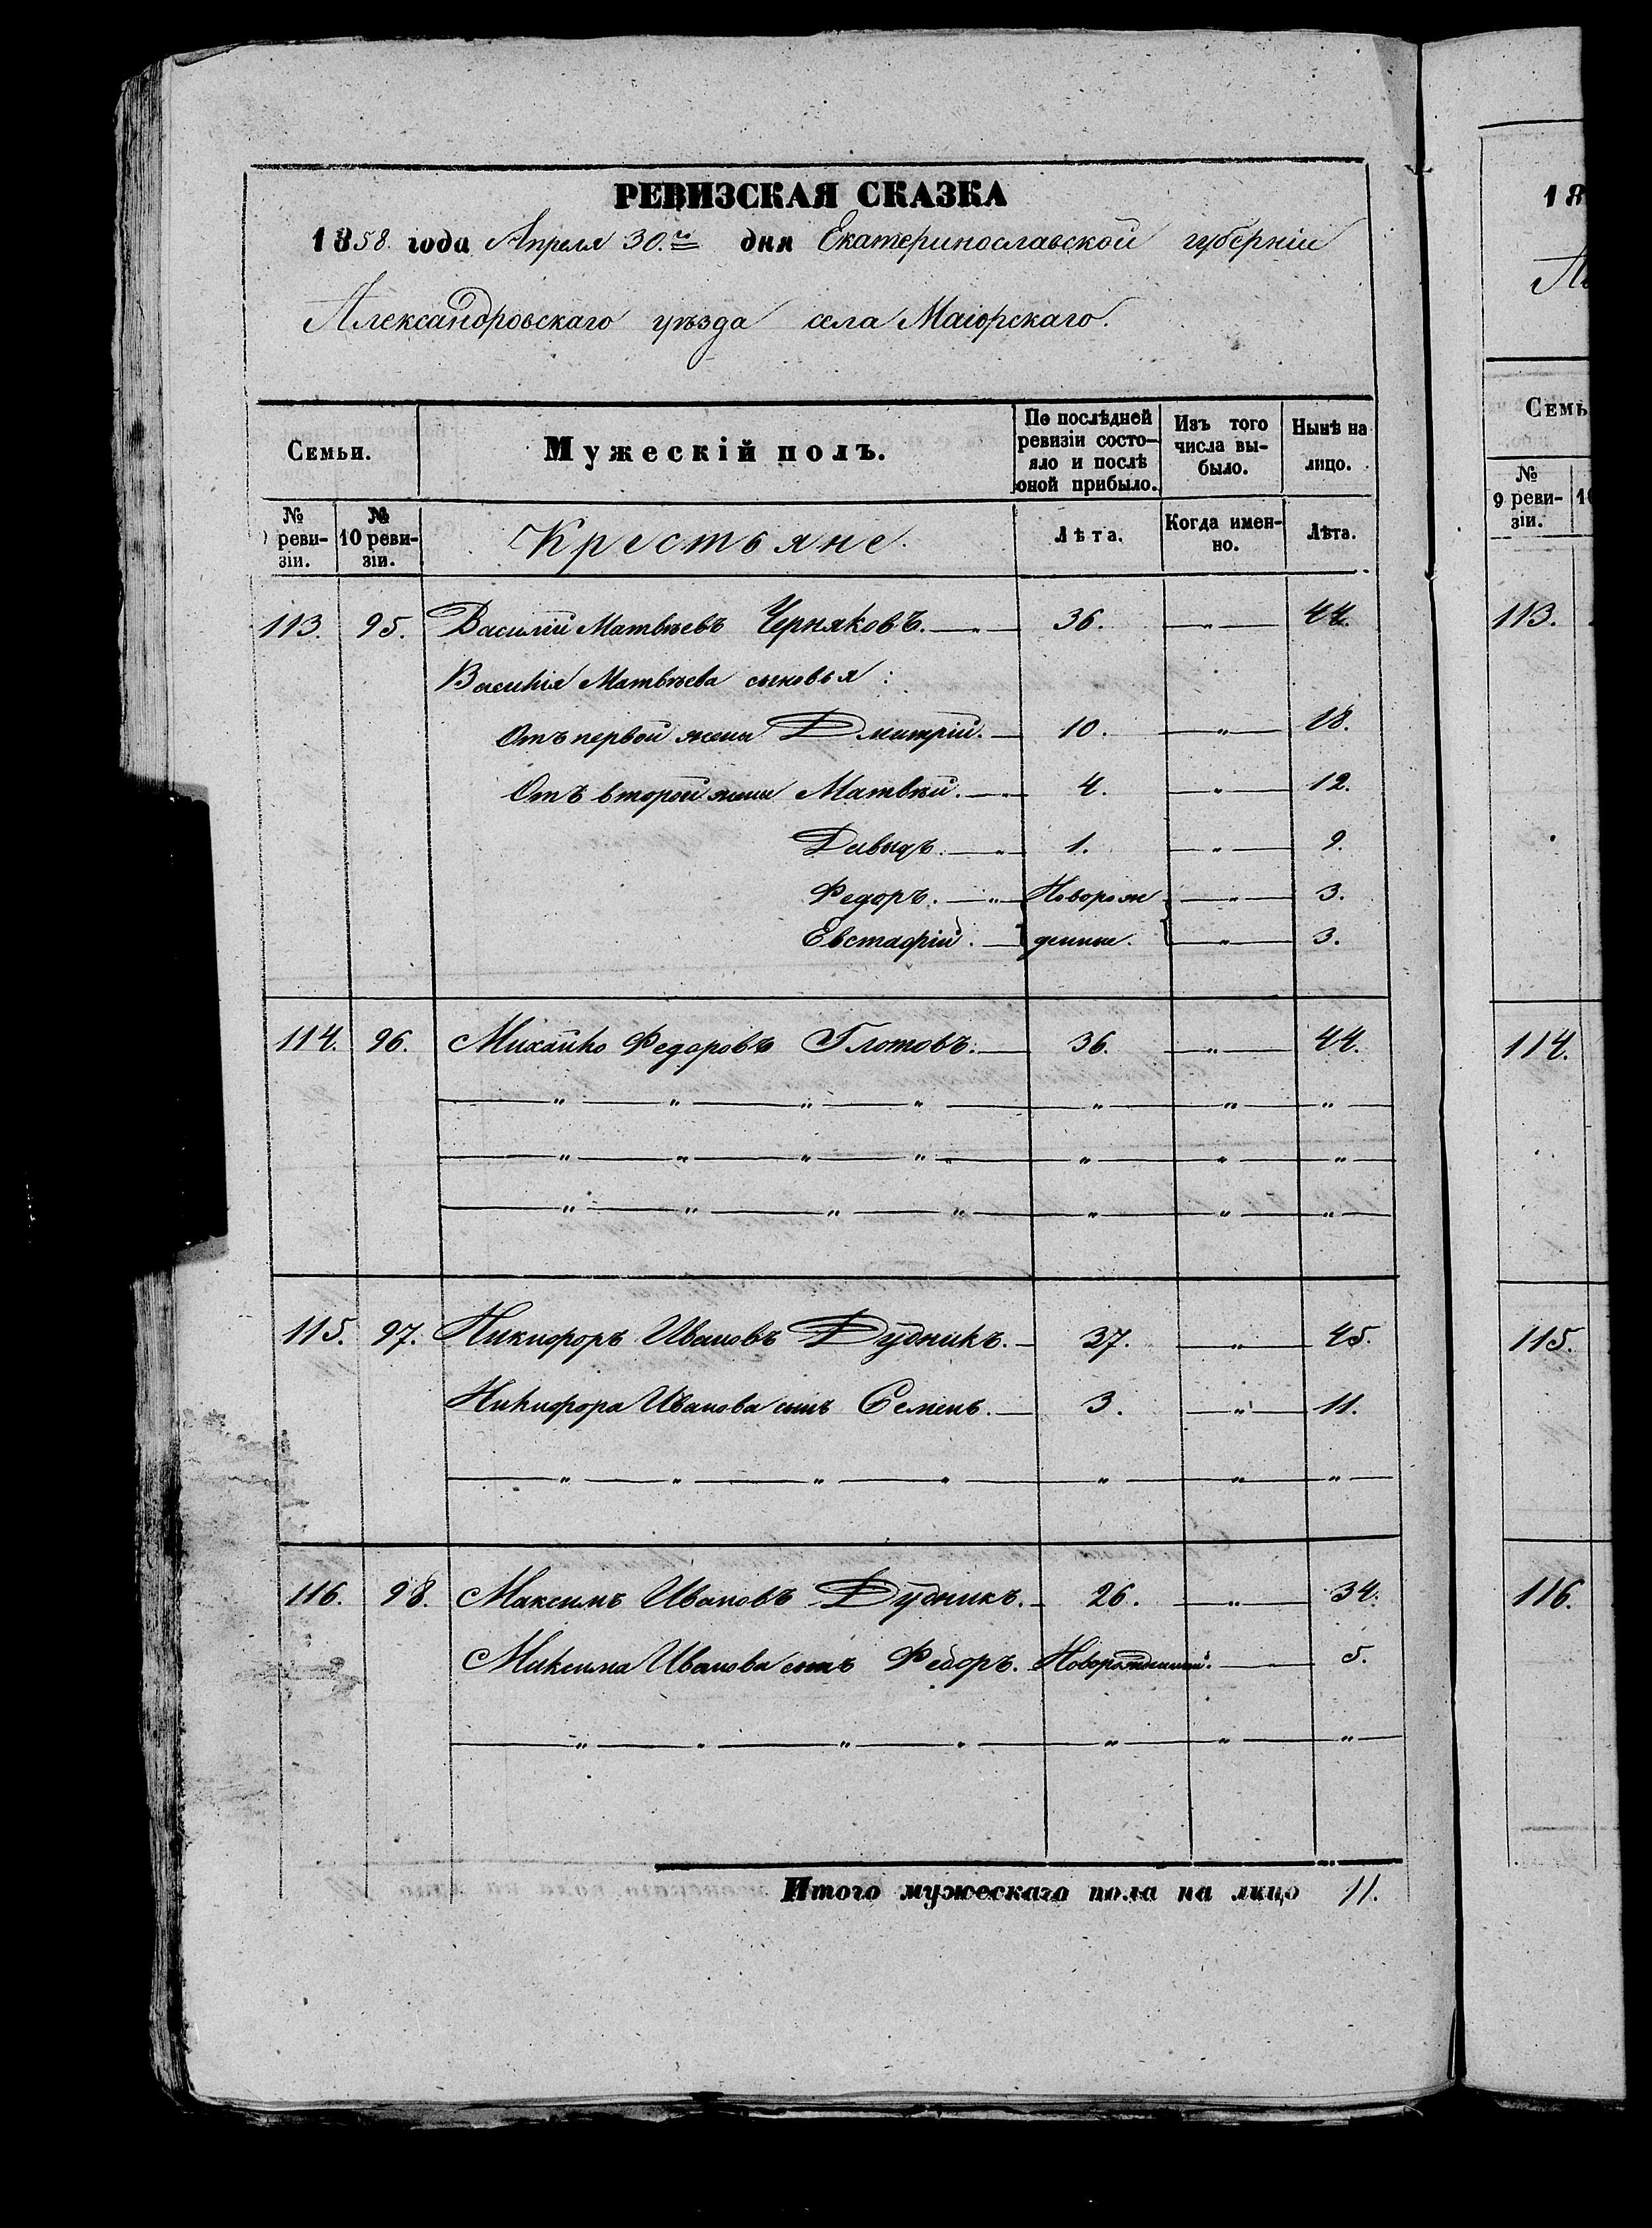 РЕВИЗСКАЯ СКАЗКА
1858. года Апреля 30.го дня Екатеринославской губерніи
Александровскаго уѣзда села Маіорскаго.
Семьи. Мужескій полъ. По послѣдней ревизіи состояло и послѣ оной прибыло. Изъ того числа выбыло. Нынѣ на лицо.
№ ревизіи. № 10 ревизіи. Крестьяне. Лѣта. Когда именно. Лѣта.
113. 95. Василій Матвѣевъ Черняковъ. — 36. — " — 44.
Василія Матвѣева сыновья:
Отъ первой жены Дмитрій. — 10. — " — 18.
Отъ второй жены Матвѣй. — 4. — " — 12.
Давыдъ. — " — 1. — " — 9.
Федоръ. — " — Новорож — " — 3.
Евстафій. — денные. — " — 3.
114. 96. Михайло Федоровъ Глотовъ. — 36. — " — 44.
— " — " — " — " — " — " — " —
— " — " — " — " — " — " — " —
— " — " — " — " — " — " — " —
115. 97. Никифоръ Ивановъ Дудникъ. — 37. — " — 45.
Никифора Иванова сынъ Семенъ. — 3. — " — 11.
— " — " — " — " — " — " — " —
116. 98. Максимъ Ивановъ Дудникъ. — 26. — " — 34.
Максима Иванова сынъ Федоръ. Новорожденный. — 5.
— " — " — " — " — " — " — " —
Итого мужескаго пола на лицо 11.
18
Семь
№ 9 ревизіи.
113.
114.
115.
116.